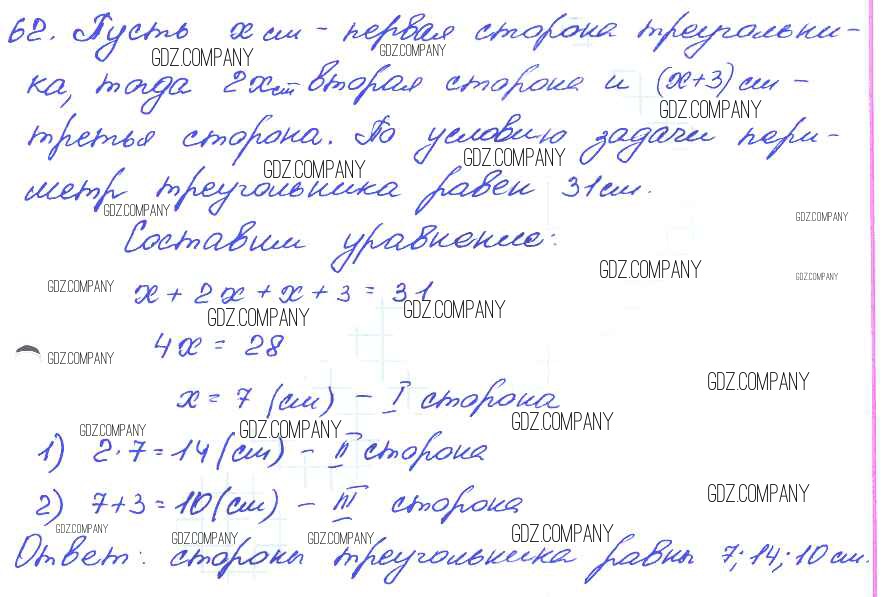 62. Пусть x см - первая сторона треугольни-
GDZ.COMPANY GDZ.COMPANY
ка, тогда 2x см вторая сторона и (x+3) см -
GDZ.COMPANY
третья сторона. По условию задачи пери-
GDZ.COMPANY GDZ.COMPANY
метр треугольника равен 31 см.
GDZ.COMPANY GDZ.COMPANY
Составим уравнение:
GDZ.COMPANY GDZ.COMPANY
GDZ.COMPANY x + 2x + x + 3 = 31
GDZ.COMPANY GDZ.COMPANY
4x = 28
GDZ.COMPANY
GDZ.COMPANY
x = 7 (см) - I сторона
GDZ.COMPANY GDZ.COMPANY GDZ.COMPANY
1) 2·7=14 (см) - II сторона
GDZ.COMPANY
2) 7+3=10 (см) - III сторона
GDZ.COMPANY GDZ.COMPANY GDZ.COMPANY GDZ.COMPANY
Ответ: стороны треугольника равны 7; 14; 10 см.